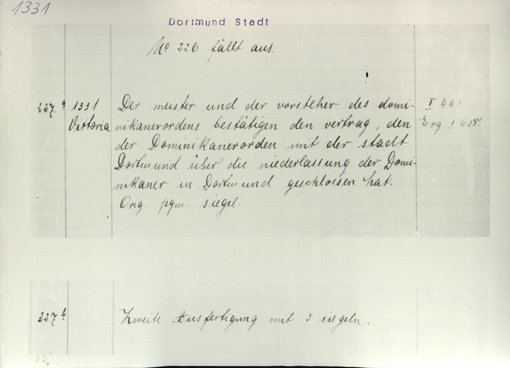 1331
Dortmund Stadt
No 226 fällt aus.
227a 1331 Der meister und der vorsteher des domi- I 461
Vittoria nikanerordens bestätigen den vertrag, den Erg. I
der Dominikanerorden mit der stadt
Dortmund über die niederlassung der Domi-
nikaner in Dortmund geschlossen hat.
Orig. pgm. siegel.
227b Zweite Ausfertigung mit 3 siegeln.